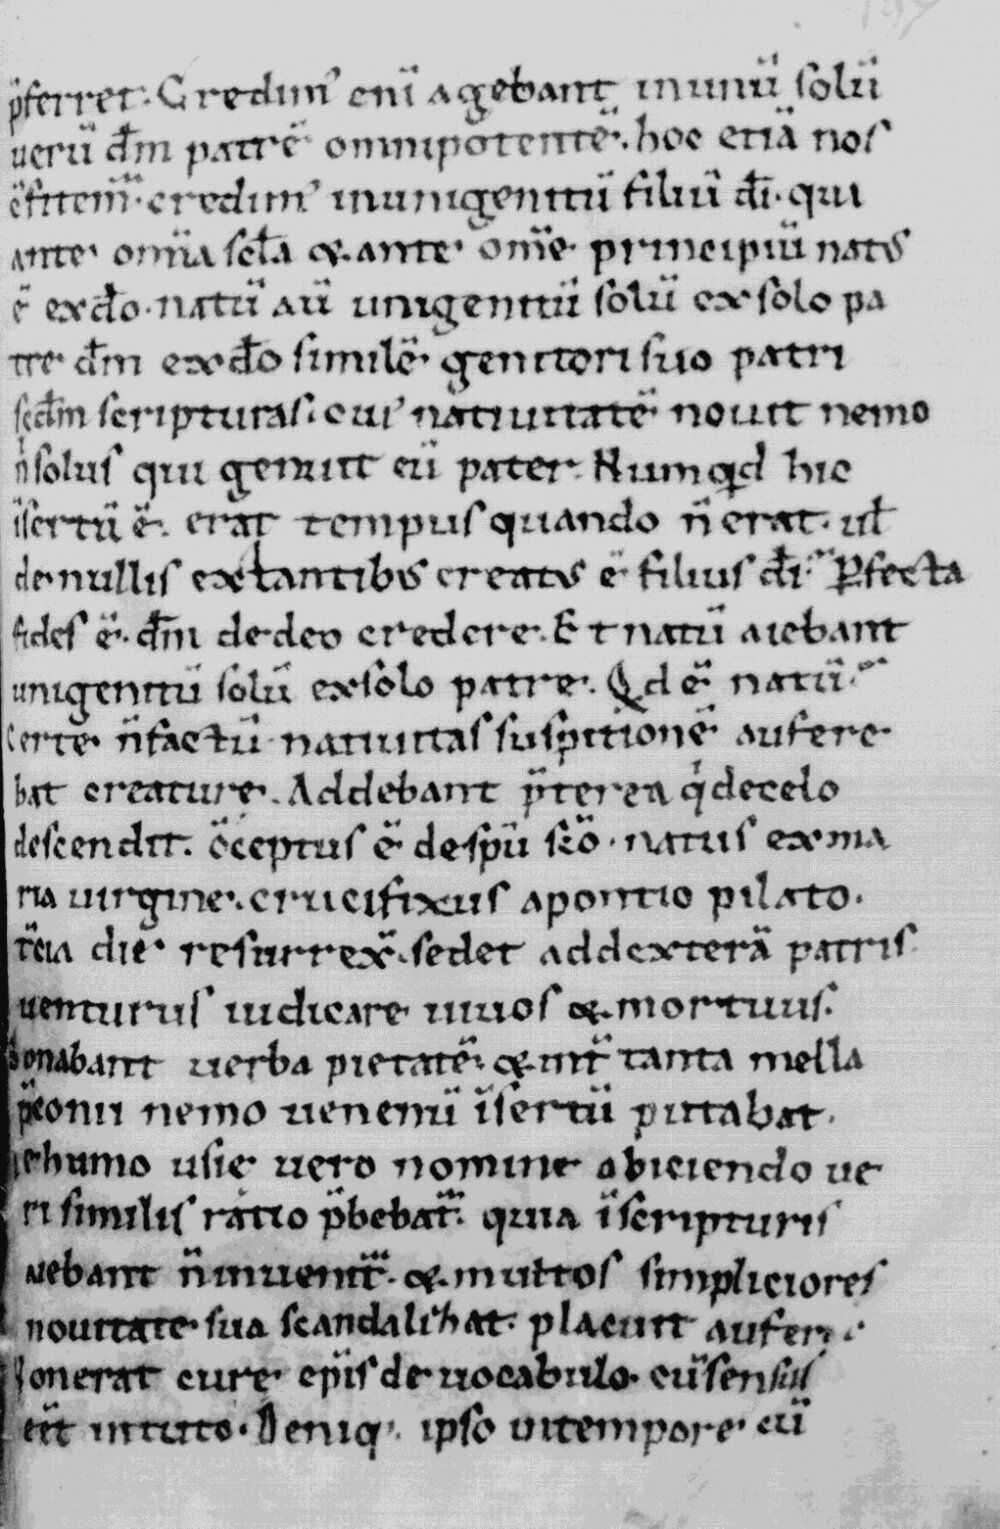 p̄ferret. Credim᾿ eni̅ agebant inunu̅ solu̅
ueru̅ dm̅ patre̅ omnipotente̅. hoc etia̅ nos
c̅fitem̅. credim᾿ inunigenitu̅ filiu̅ di̅. qui
ante omi̅a scl̅a &. ante om̅e principiu̅ natꝰ
e̅ exdo̅. natu̅ au̅ unigenitu̅ solu̅ exsolo pa
tre dm̅ exdo̅ simile̅ genitori suo patri
scd̅m scripturas. cui᾿ natiuitate̅ nouit nemo
n solus qui genuit eu̅ pater. Numqd hic
i̅sertu̅ e̅. erat tempus quando n̅ erat. ul̅
de nullis extantibꝰ creatꝰ e̅ filius di̅. Ꝑfecta
fides e̅. dm̅ dedeo credere. Et natu̅ aiebant
unigenitu̅ solu̅ exsolo patre. Qd e̅ natu̅
Certe n̅factu̅ natiuitas suspitione̅ aufere
bat creature. Addebant p̅terea q decelo
descendit. c̅ceptus e̅ despu̅ sco̅. natus exma
ria uirgine. crucifixus apontio pilato.
t̅cia die resurrex̅. sedet addextera̅ patris.
uenturus iudicare uiuos &. mortuus.
Sonabant uerba pietate̅. &. int̅ tanta mella
p̅conii nemo uenenu̅ i̅sertu̅ putabat.
ehumo usie uero nomine abiciendo ue
ri similis ratio p̅bebat̅. quia i̅scripturis
aiebant n̅ inuenit̅. &. multos simpliciores
nouitate sua scandalihat. placuit auferre
Nonerat cure epi̅s de uocabulo. cu̅ sensus
ee̅t intuto. Deniq. ipso intempore cu̅